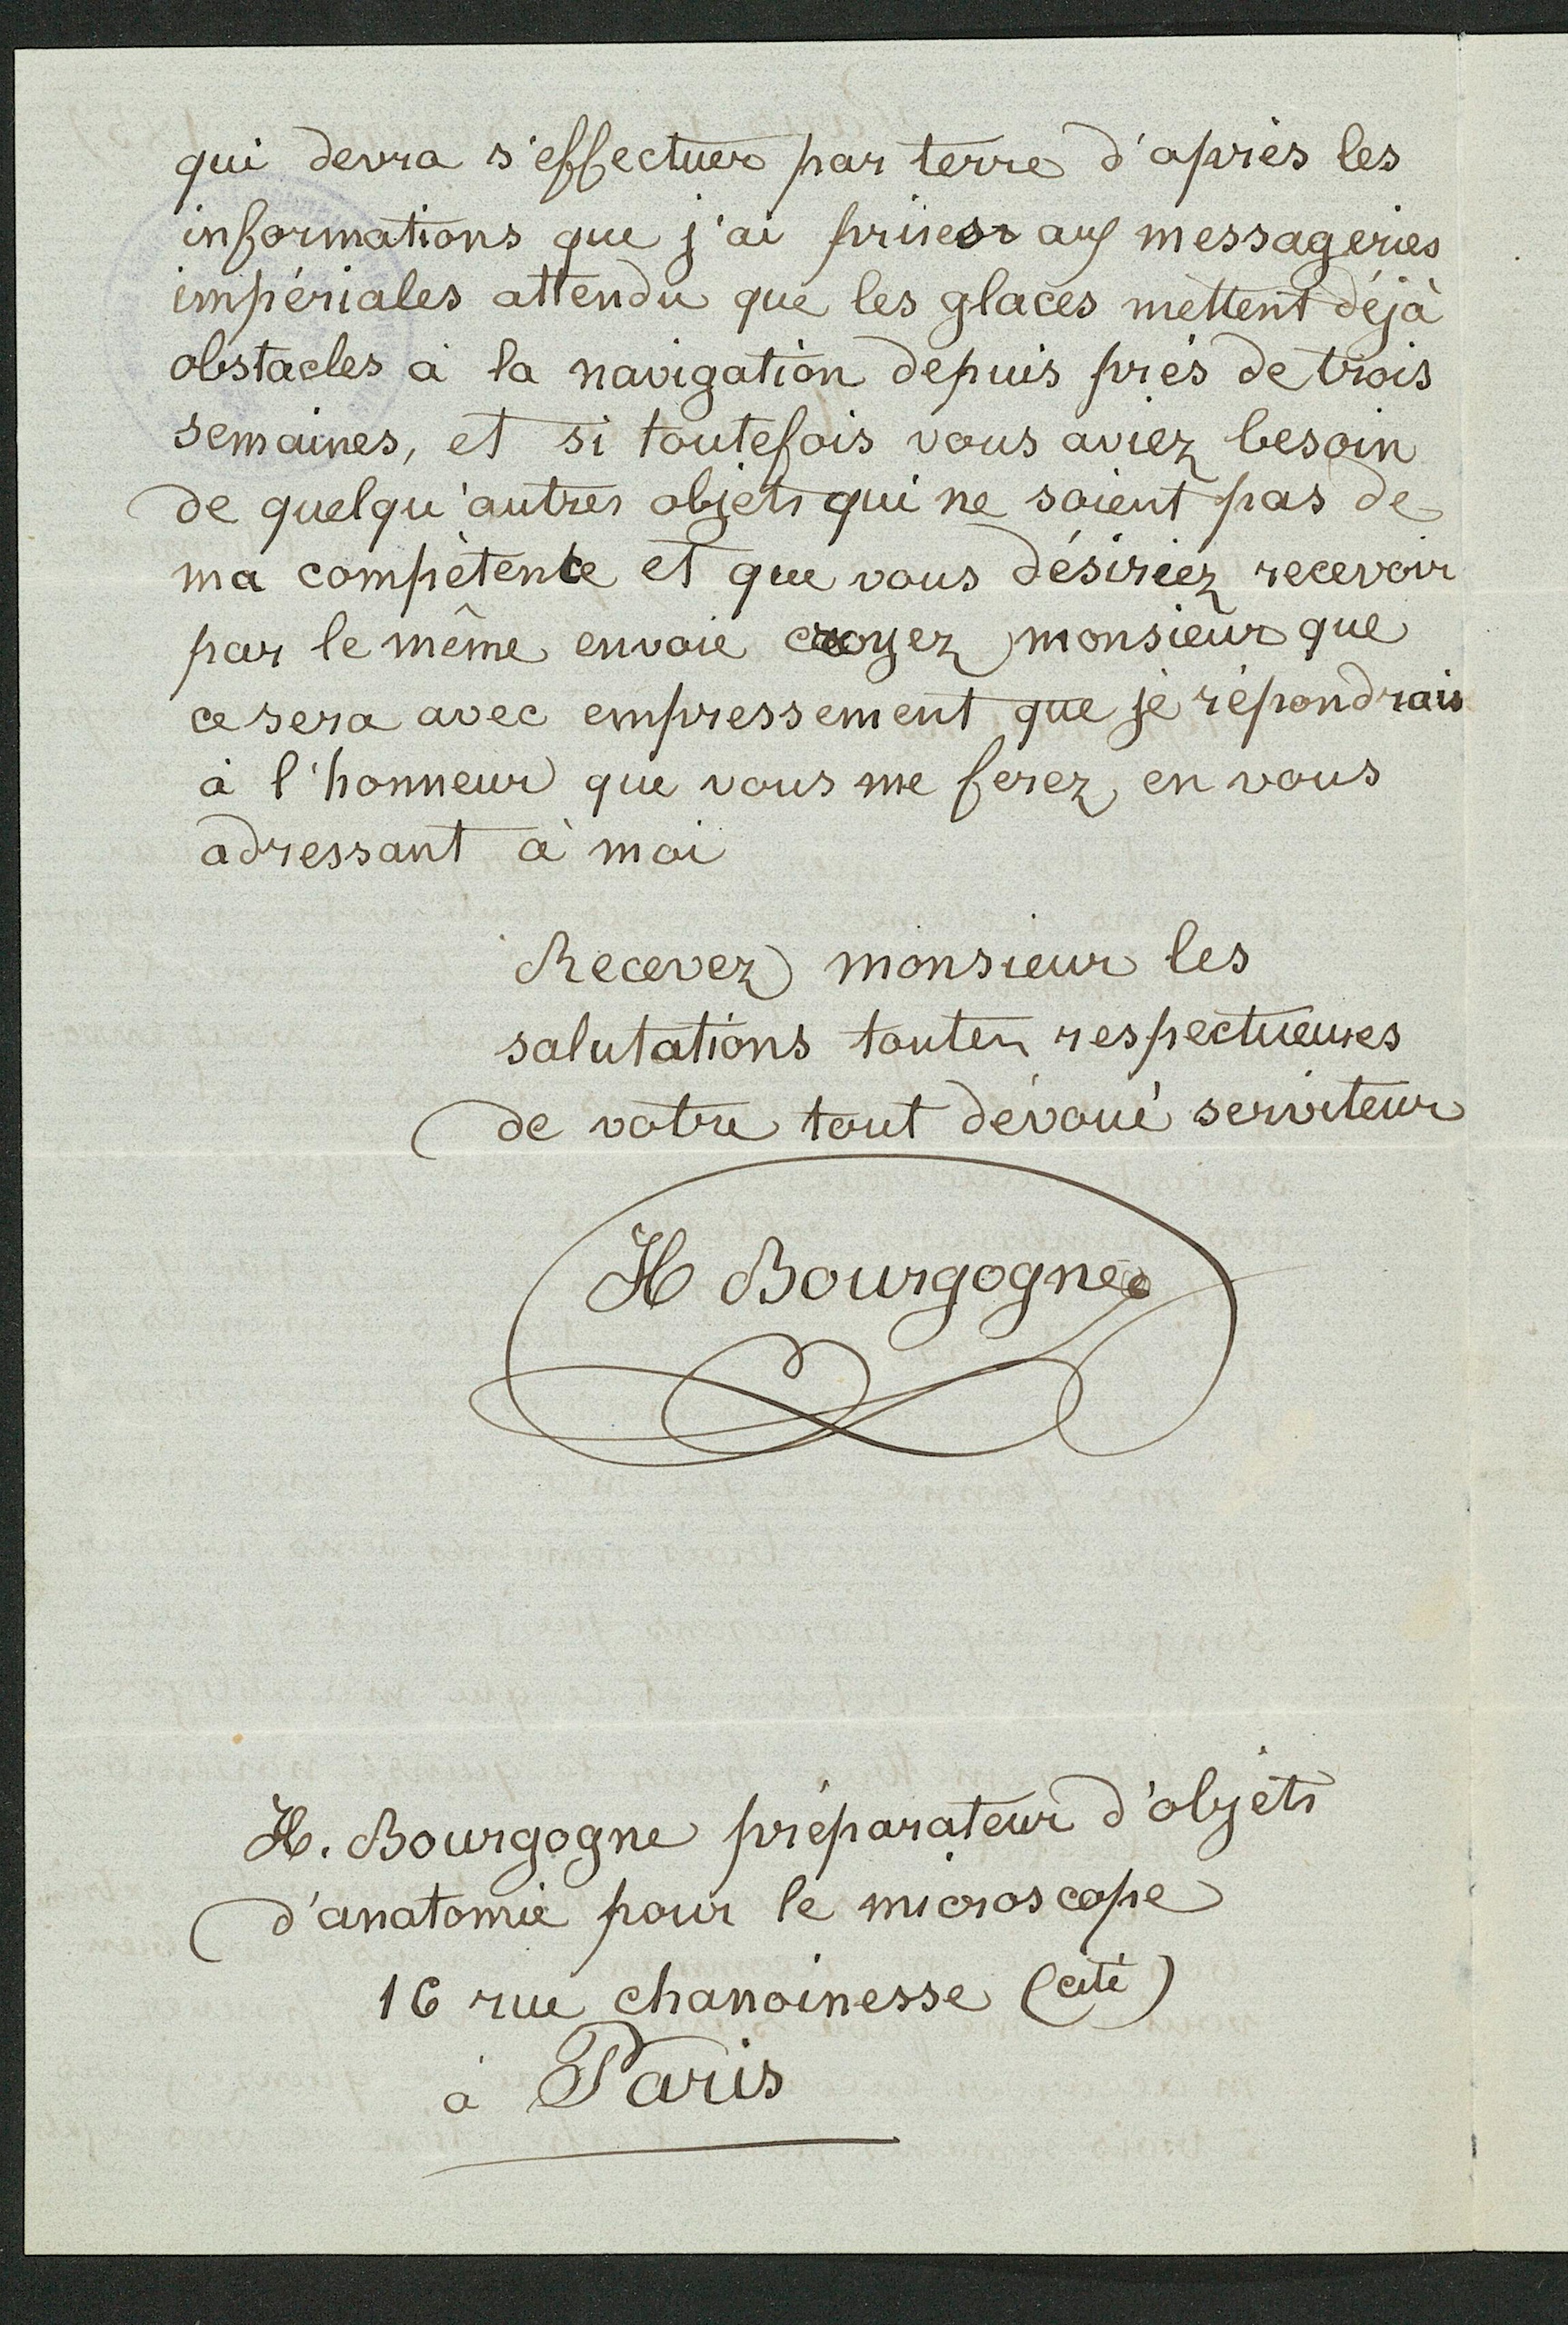 qui devra s'effectuer par terre d'après les
informations que j'ai prises aux messageries
impériales attendu que les glaces mettent déjà
obstacles à la navigation depuis près de trois
semaines, et si toutefois vous aviez besoin
de quelqu'autres objets qui ne soient pas de
ma compétence et que vous désiriez recevoir
par le même envoie croyez monsieur que
ce sera avec empressement que je répondrais
à l'honneur que vous me ferez en vous
adressant à moi
Recevez monsieur les
salutations toutes respectueuses
de votre tout dévoué serviteur
H Bourgogne
H. Bourgogne préparateur d'objets
d'anatomie pour le microscope
16 rue chanoinesse (cité)
à Paris